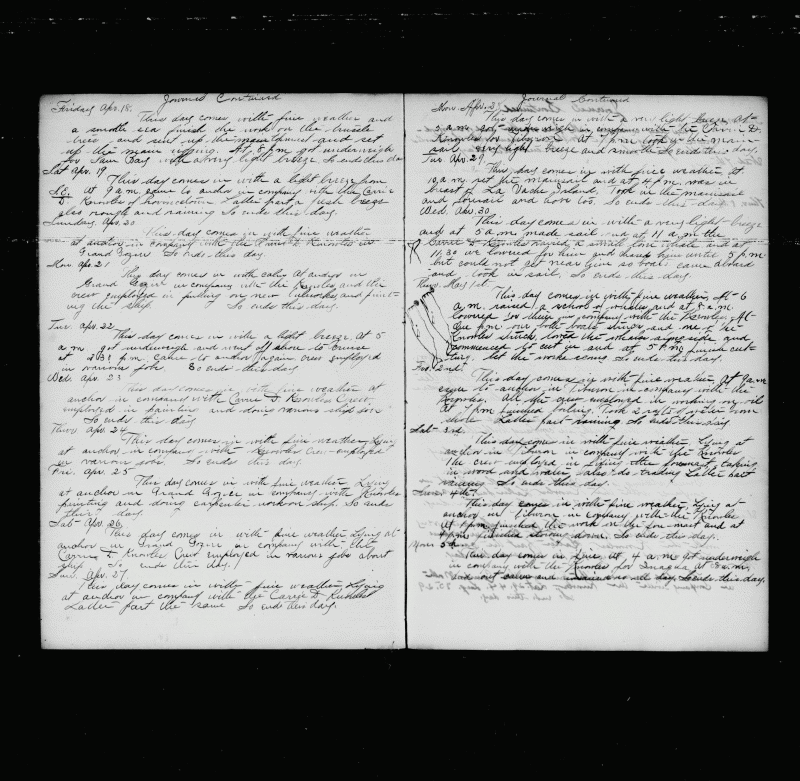 Journal Continued
Friday Apr. 18.
This day comes with fine weather and
a smooth sea finish the work on the
trees and sent up the mainmast and set
up the main rigging. At 8 p.m. got underweigh
for Bay with a very light breeze So ends this da
Sat Apr. 19
This day comes in with a light breeze from
N.E. at 9 a.m. came to anchor in company with the Carrie
D. Knowles of Latter part a fresh breeze
also rough and raining So ends this day.
Sunday Apr. 20
This day comes in with fine weather
at anchor in company with the Carrie D. Knowles in
Grand So ends this day.
Mon. Apr. 21
This day comes in with calm At anchor in
Grand in company with the Knowles and the
crew employed in putting on new bulwarks and paint-
ing the ship. So ends this day.
Tue. Apr. 22
This day comes in with a light breeze. At 5
a.m. got underweigh and went off shore to cruise
at p.m. came to anchor again crew employed
in various jobs So ends this day
Wed. Apr. 23
This day comes in with fine weather at
anchor in company with Carrie D. Knowles Crew
employed in painting and doing various ship jobs
So ends this day
Thur. Apr. 24
This day comes in with fine weather, Lying
at anchor in company with Knowles Crew employed
in various jobs. So ends this day.
Fri. Apr. 25
This day comes in with fine weather Lying
at anchor in Grand in company with Knowles
painting and doing carpenter work on ship. So ends
this day.
Sat Apr. 26
This day comes in with fine weather Lying at
anchor in Grand in company with the
Carrie D Knowles Crew employed in various jobs about
ship So ends this day.
Sun. Apr. 27
This day comes in with fine weather Lying
at anchor in company with the Carrie D Knowles
Latter part the same So ends this day.
Journal Continued
Mon. Apr. 28
This day comes in with a very light breeze At
5 a.m. got underweigh in company with the Carrie D.
Knowles for at 1 p.m. took in the main-
sail very light breeze and smooth So ends this day.
Tue. Apr. 29.
This day comes in with fine weather, At
10 a.m. set the mainsail and at 4 p.m. was in
breast of La Vache Island. Took in the mainsail
and foresail and hove too. So ends this day.
Wed. Apr. 30
This day comes in with a very light breeze
and at 5 a.m. made sail and at 11 a.m. the
Carrie D Knowles raised a small lone whale and at
11,30 we lowered for him and him until 3 p.m.
but could not get near him so boats came aboard
and took in sail. So ends this day.
Thur. May 1st.
This day comes in with fine weather, At 6
a.m. raised a school of whales and at 8 a.m.
lowered for them in company with the Knowles. At
one p.m. our both boats struck and one of the
Knowles struck, took the whales alongside and
commenced to cut and at 5 p.m. finished cut-
ting. So ends this day.
Fri. 2nd.
This day comes in with fine weather, At 9 a.m.
came to anchor in Tiburon in company with the
Knowles. All the crew employed in working on oil
at 7 p.m. finished boiling. Took 2 of water from
shore Latter part raining. So ends this day
Sat 3rd.
This day comes in with fine weather, Lying at
anchor in Tiburon in company with the Knowles
The crew employed in the foremast, taking
in wood and water, also do trading Latter part
raining So ends this day.
Sun. 4th.
This day comes in with fine weather, Lying at
anchor in Tiburon in company with the Knowles
At 1 p.m. finished the work on the foremast and at
4 p.m. finished stowing down. So ends this day.
Mon. 5th
This day comes in fine at, 4 a.m. got underweigh
in company with the Knowles for Inagua At 8 a.m.
and no oil all day. So ends this day.